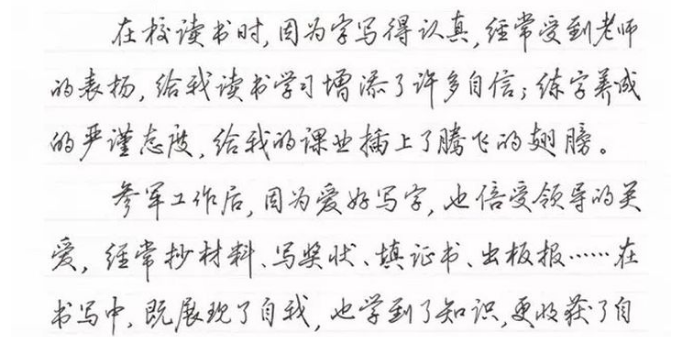 在校读书时,因为字写得认真,经常受到老师
的表扬,给我读书学习增添了许多自信;练字养成
的严谨态度,给我的课业插上了腾飞的翅膀。
参军工作后,因为爱好写字,也倍受领导的关
爱,经常抄材料、写奖状、填证书、出板报……在
书写中,既展现了自我,也学到了知识,更收获了自